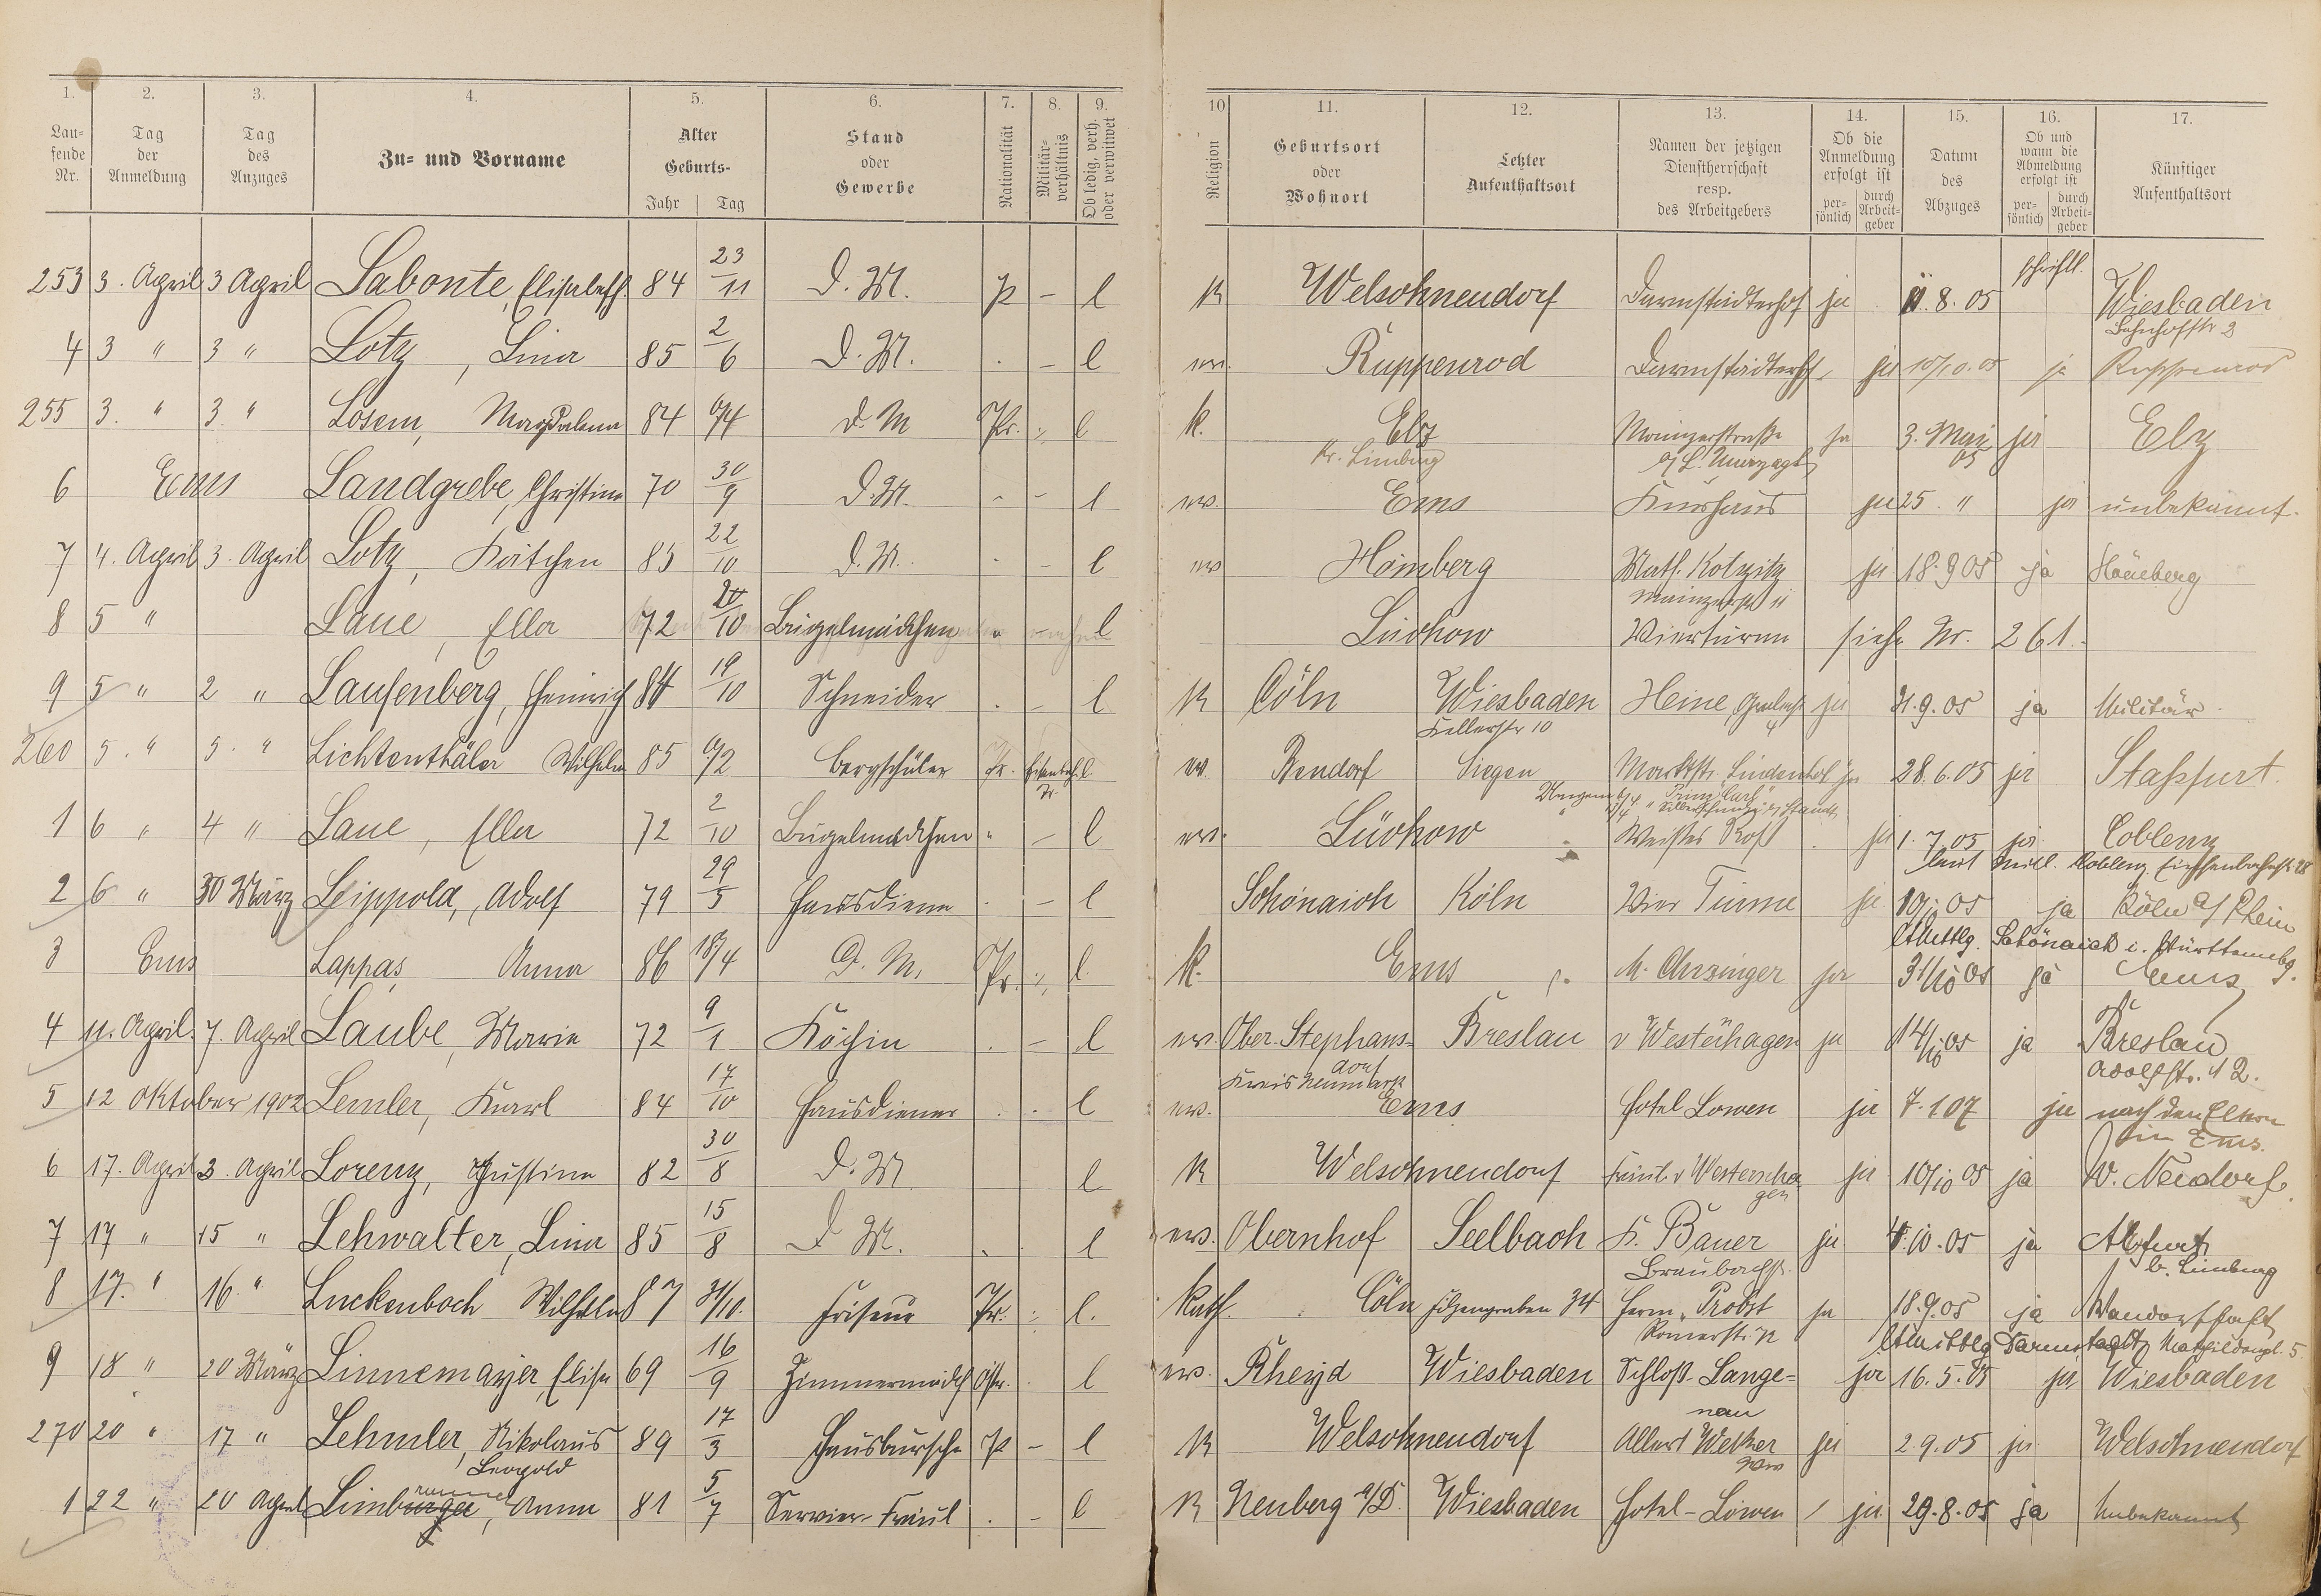 1. 2. 3. 4. 5. 6. 7. 8. 9. 10 11. 12. 13. 14. 15. 16. 17.
Laufende Nr. | Tag der Anmeldung | Tag des Anzuges | Zu- und Vorname | Alter Geburts- Jahr Tag | Stand oder Gewerbe | Nationalität | Militär-verhältnis | Ob ledig, verh. oder verwitwet | Religion | Geburtsort oder Wohnort | Letzter Aufenthaltsort | Namen der jetzigen Dienstherrschaft resp. des Arbeitgebers | Ob die Anmeldung erfolgt ist per-sönlich durch Arbeit-geber | Datum des Abzuges | Ob und wann die Abmeldung erfolgt ist per-sönlich durch Arbeit-geber | Künftiger Aufenthaltsort
253 3. April 3 April Labonte, Elisabeth 84 23/11 D. M. p – l K Welschneudorf Darmstädterhof ja 11.8.05 schriftl. Wiesbaden
Bahnhofstr 3
4 3 " 3 " Lotz, Lina 85 2/6 D. M. . – l ev. Ruppenrod Darmstädterhf ja 10/10.05 ja Ruppenrod
255 3. " 3. " Losem, Magdalena 84 9/4 D. M Pr. l k. Elz Mainzerstraße ja 3. Mai 05 ja Elz
Kr. Limburg
6 Ems Landgrebe, Christina 70 30/9 D. M. - - l ev. Ems Kurhaus ja 25 " ja unbekannt.
7 4. April 3. April Lotz, Kätchen 85 22/10 D. M. - - l ev Homberg Math. Kotzitz ja 18.9 05 ja Homberg
Mainzerstr 11
8 5 " Laue, Ella 72 10 Bügelmädchen l Lüchow Viertürme siehe Nr. 261.
9 5 " 2 " Laufenberg, Heinrich 84 19/10 Schneider . – l K Cöln Wiesbaden Heine, ja 21.9.05 ja Militär
Kellerstr 10
260 5. " 5. " Lichtenthäler Wilhelm 85 9/2 Bergschüler Pr. l ev. Bendorf Siegen Marktstr. Lindenhof ja 28.6.05 ja Staßfurt.
1 6 " 4 " Laue, Ella 72 2/10 Bügelmädchen " – l ev. Lüchow Weißes Roß ja 1.7.05 ja Coblenz
laut Mittl. Koblenz
2 6 " 30 März Leippold, Adolf 79 29/5 Hausdiener . – l Schönaich Köln Vier Türme ja 10/10 05 ja Köln a/Rhein
lt Mittlg. Schönaich i. Württembg.
3 Ems Lappas Anna 86 18/4 D. M. Pr. l k. Ems ja 31/10 05 ja Ems
4 11. April 7. April Laube, Marie 72 9/1 Köchin . – l ev. Ober-Stephans= Breslau v Westenhagen ja 14/10 05 ja Breslau
dorf Kreis Neumark
Adolfstr. 12.
5 12 Oktober 1902 Lemler, Karl 84 17/10 Hausdiener . . l ev. Ems Hotel Löwen ja 7.1 07 ja nach den Eltern
in Ems.
6 17. April 3. April Lorenz, Justina 82 30/8 D. M l K Welschneudorf Fräul. v Westerscha ja 10/10 05 ja W. Neudorf.
gen
7 17 " 15 " Lehwalter, Lina 85 15/8 D. M. . l ev. Obernhof Seelbach K. Bauer ja 4.10.05 ja
Braubachst. b. Limburg
8 17. " 16. " Luckenbach Wilhelm 87 31/10. Friseur Pr. l. Kath. Cöln Filzengraben 34 Herm. Probst ja 18.9.05 ja Wanderschaft
Römerstr. lt Mittlg Darmstadt, 5.
9 18 " 20 März Linnemayer, Elise 69 16/9 Zimmermädch Östr. l ev. Rheyd Wiesbaden Schloß-Lange= ja 16.5.05 ja Wiesbaden
nau
270 20 " 17 " Lehmler, Nikolaus 89 17/3 Hausbursche p – l K Welschneudorf Albert Welker ja 2.9.05 ja Welschneudorf
Leopold Wws
1 22 " 20 April Limburger, Anna 81 5/7 Servier-Fräul . – l K Neuberg a/D. Wiesbaden Hotel-Löwen ja 29.8.05 ja Unbekannt